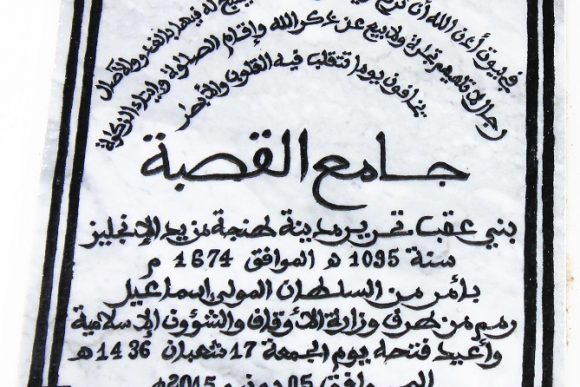 في بيوت أذن الله أن ترفع
له فيها بالغدو والآصال
رجال لا تلهيهم تجارة ولا بيع عن ذكر الله وإقام الصلوة وإيتاء الزكوة
يخافون يوما تتقلب فيه القلوب والأبصر
جامع القصبة
بني عقب تحرير مدينة طنجة من يد الإنجليز
سنة 1095 ه الموافق 1674 م
بأمر من السلطان المولى اسماعيل
رمم من طرف وزارة الأوقاف والشؤون الإسلامية
وأعيد فتحه يوم الجمعة 17 شعبان 1436 ه
الموافق 05 يونيو 2015 م